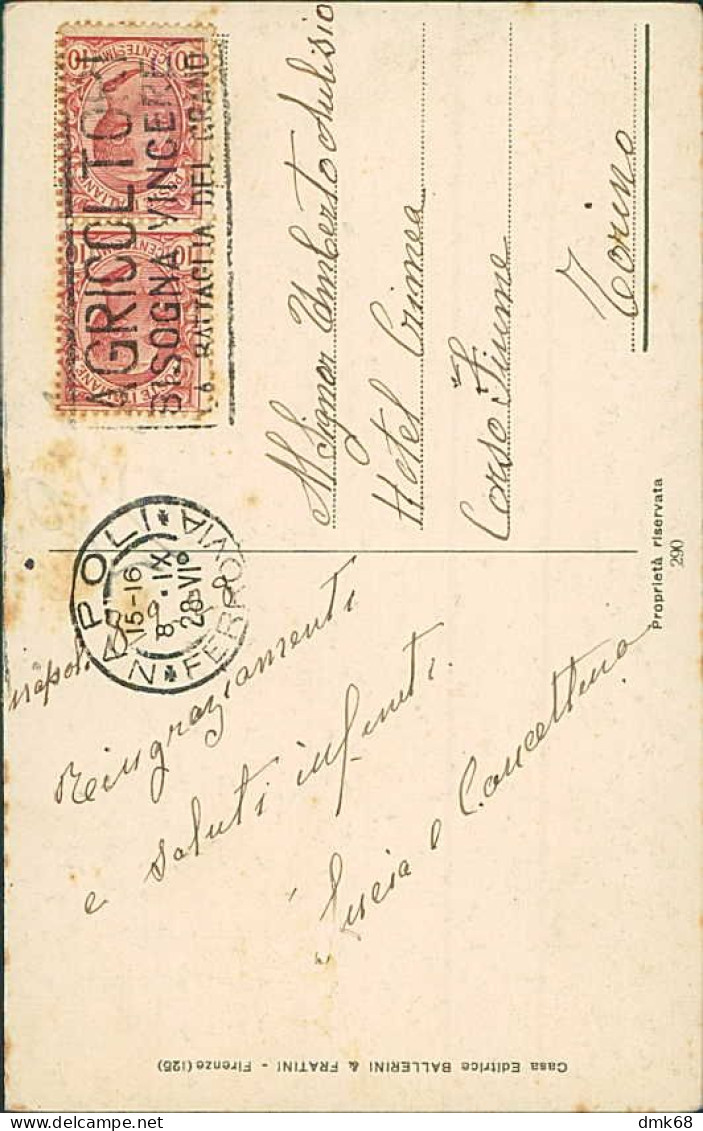 AGRICOLTORI
BISOGNA VINCERE
LA BATTAGLIA DEL GRANO
POSTE ITALIANE
CENTESIMI 10
POSTE ITALIANE
CENTESIMI 10
NAPOLI FERROVIA
15-16
8·IX
28·VI
Napoli
Reingraziamenti
e saluti infiniti.
Lucia e Concettina
Al Signor Umberto Aulisio
Hotel Crimea
Corso Fiume
Torino
Proprietà riservata
290
Casa Editrice BALLERINI & FRATINI - Firenze (125)
dmk68